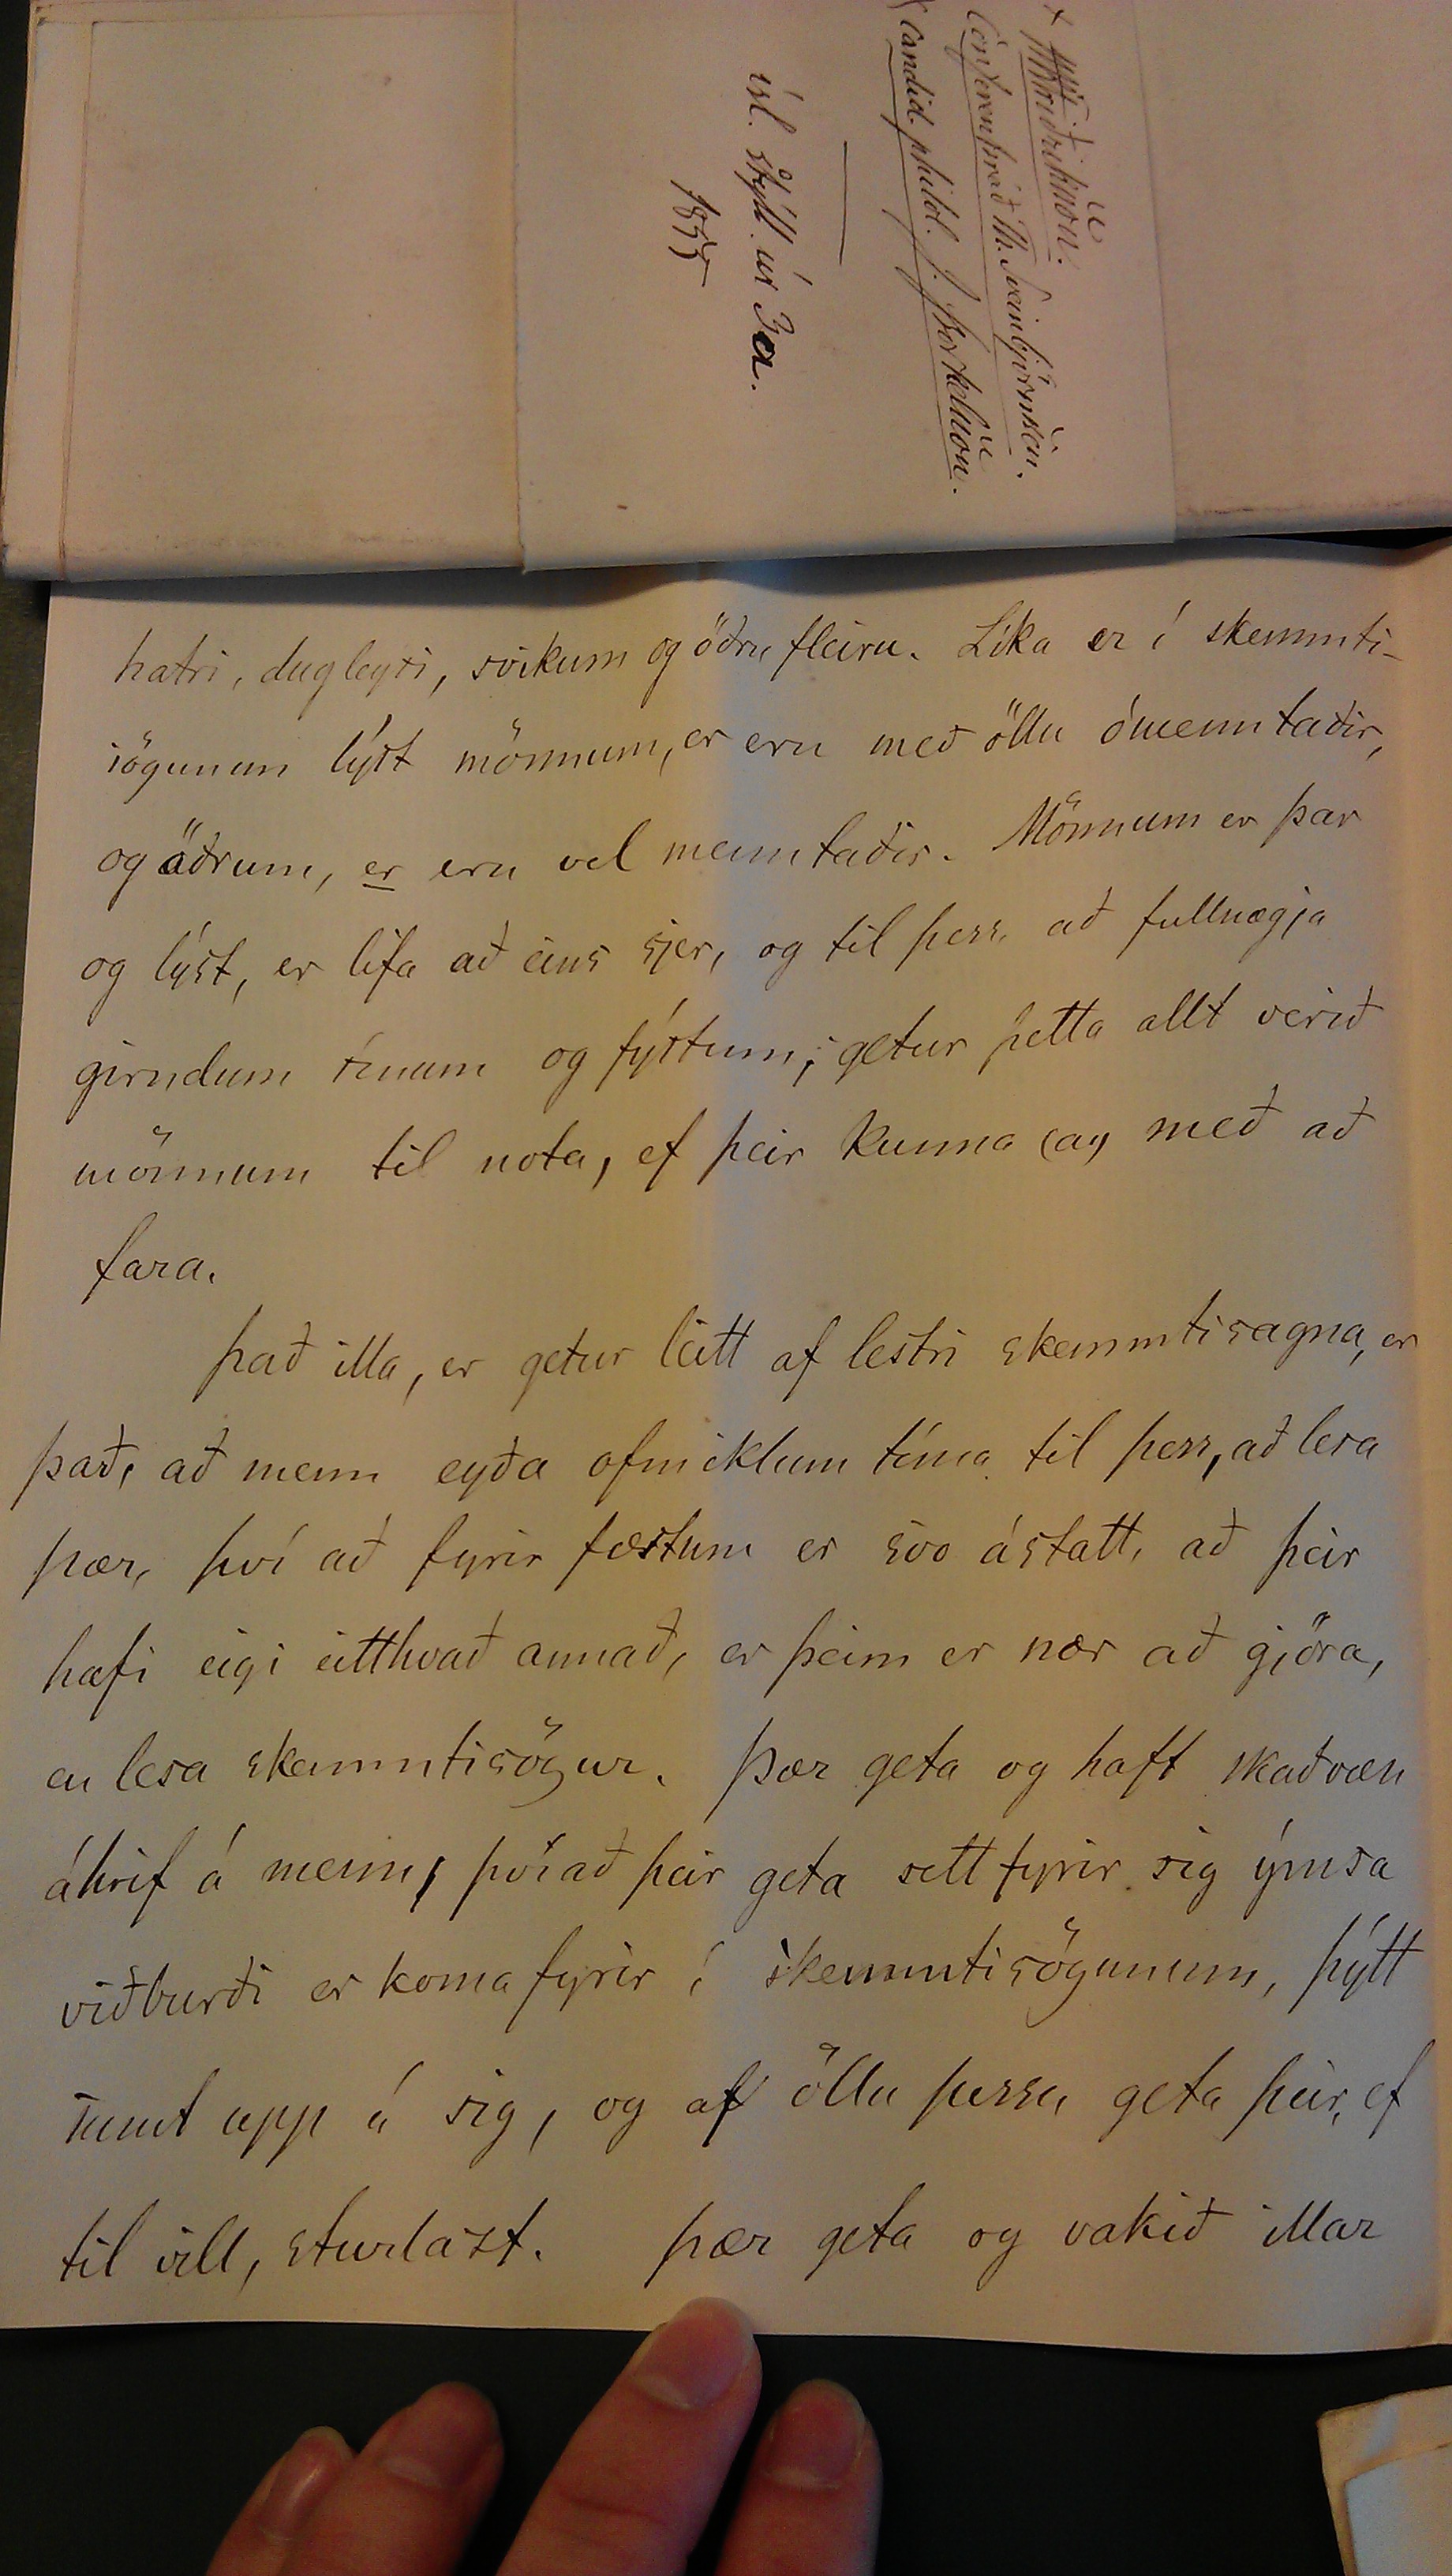 Conferensráð Th. Sveinbjörnsson.
candid. philol. J. Þorkelsson.
ísl. stýll. úr 3 a.
1855
hatri, dugleysi, svikum og öðru fleiru. Líka er í skemmti-
sögunum lýst mönnum, er eru með öllu ómenntaðir,
og öðrum, er eru vel menntaðir. Mönnum er þar
og lýst, er lifa að eins sjer, og til þess að fullnægja
girndum sínum og fýstum; getur þetta allt verið
mönnum til nota, ef þeir kunna með að
fara.
Það illa, er getur leitt af lestri skemmtisagna, er
það, að menn eyða ofmiklum tíma til þess, að lesa
þær, því að fyrir fæstum er svo ástatt, að þeir
hafi eigi eitthvað annað, er þeim er nær að gjöra,
en lesa skemmtisögur. Þær geta og haft skaðvæn
áhrif á menn, þvíað þeir geta sett fyrir sig ýmsa
viðburði er koma fyrir í skemmtisögunum, þýtt
sumt upp á sig, og af öllu þessu geta þeir, ef
til vill, sturlast. Þær geta og vakið illar